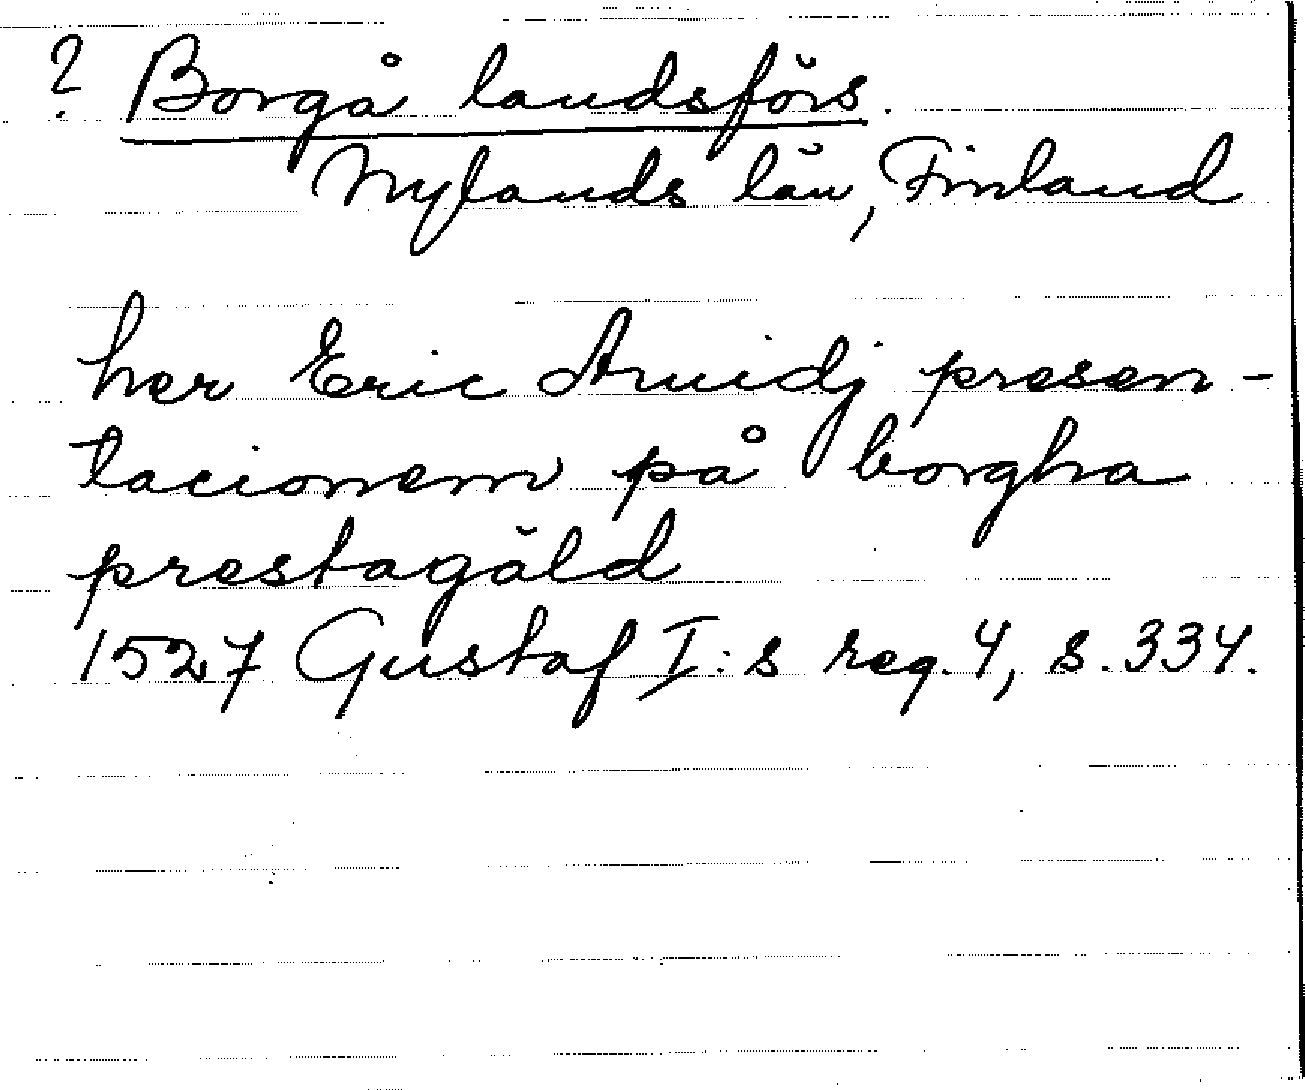 ? Borgå landsförs.
Nylands län, Finland
her Eric Aruidj presen-
tacionem på borgha
prestagäld
1527 Gustaf I:s reg. 4, s. 334.